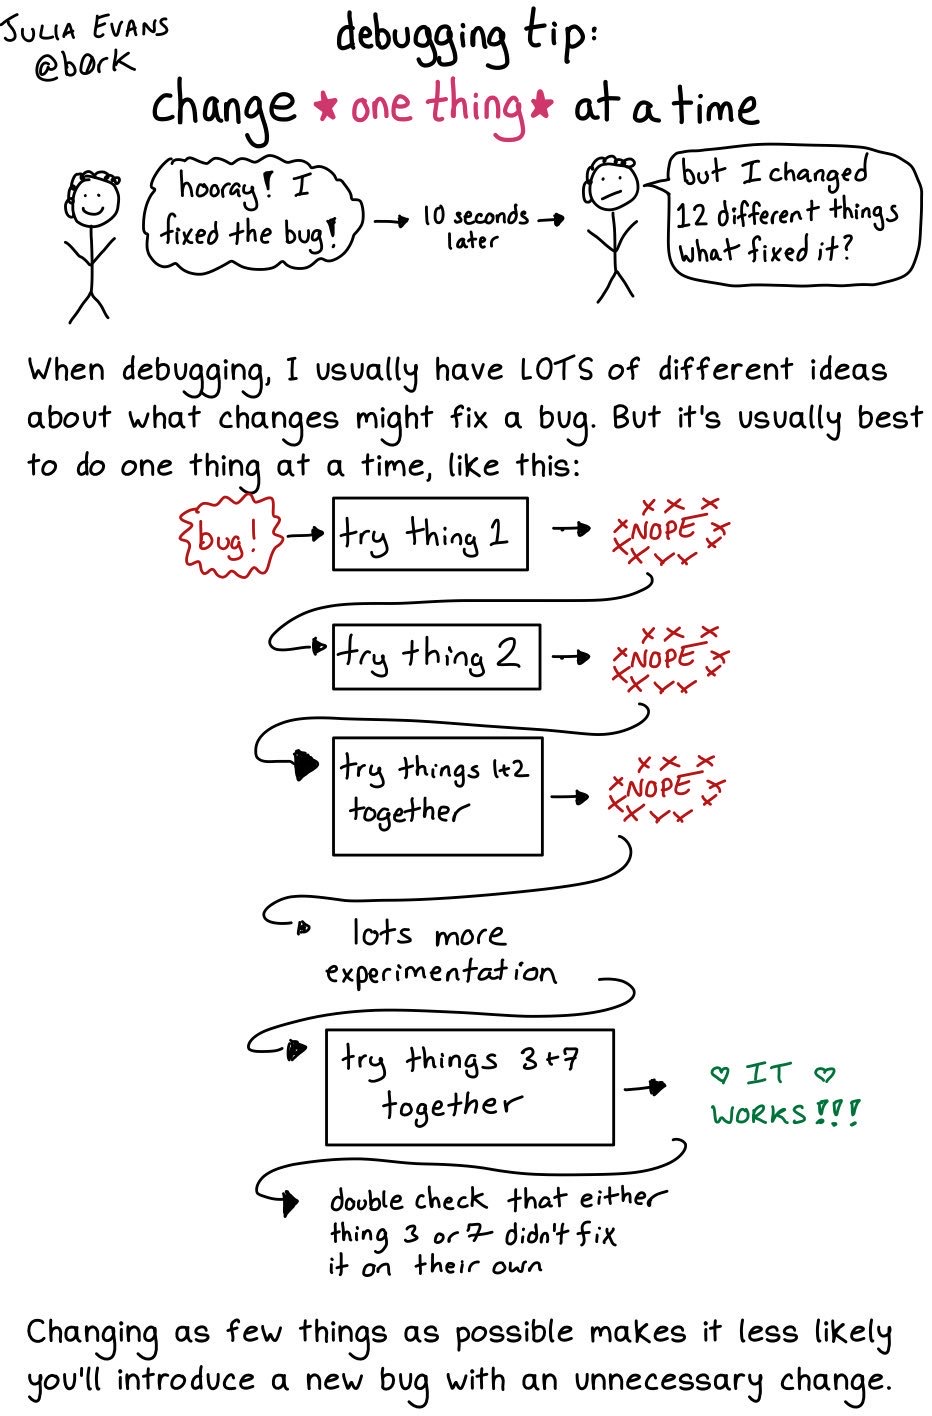 JULIA EVANS
@b0rk
debugging tip:
change ★ one thing ★ at a time
hooray! I
fixed the bug!
10 seconds
later
but I changed
12 different things
what fixed it?
When debugging, I usually have LOTS of different ideas
about what changes might fix a bug. But it's usually best
to do one thing at a time, like this:
bug!
try thing 1
NOPE
try thing 2
NOPE
try things 1+2
together
NOPE
lots more
experimentation
try things 3+7
together
♡ IT ♡
WORKS!!!
double check that either
thing 3 or 7 didn't fix
it on their own
Changing as few things as possible makes it less likely
you'll introduce a new bug with an unnecessary change.